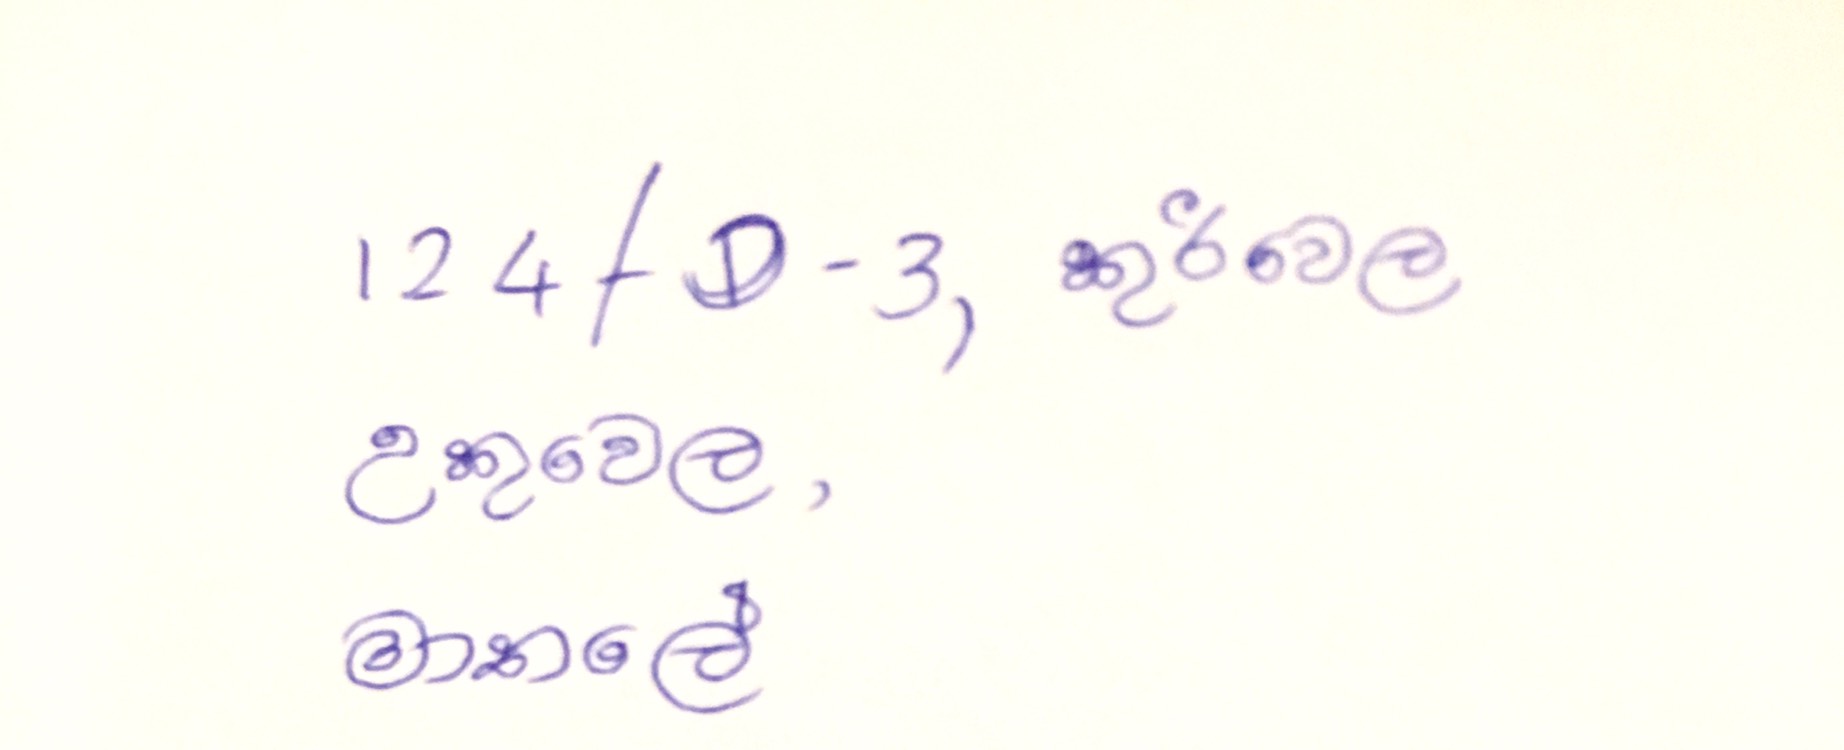 124/D-3, කුරිවෙල
උකුවෙල,
මාතලේ